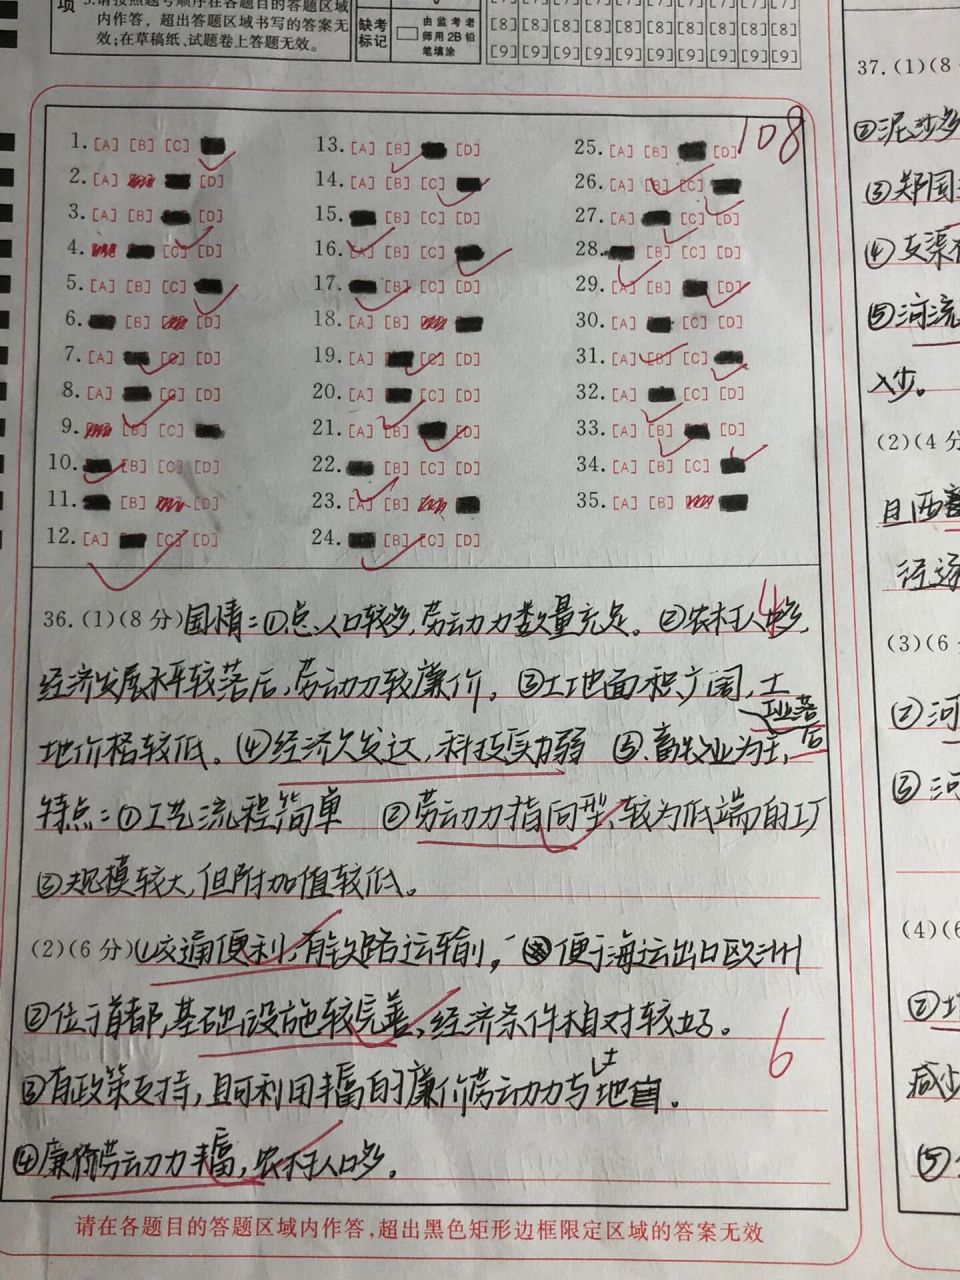 项
3.请按照题号顺序在各题目的答题区域
内作答，超出答题区域书写的答案无
效；在草稿纸、试题卷上答题无效。
缺考
标记
由监考老
师用2B铅
笔填涂
[7] [7] [7] [7] [7] [7] [7] [7] [7] [7]
[8] [8] [8] [8] [8] [8] [8] [8] [8] [8]
[9] [9] [9] [9] [9] [9] [9] [9] [9] [9]
108
1. [A] [B] [C]
2. [A] [D]
3. [A] [B] [D]
4. [C] [D]
5. [A] [B] [C]
6. [B] [D]
7. [A] [C] [D]
8. [A] [C] [D]
9. [B] [C]
10. [B] [C] [D]
11. [B] [D]
12. [A] [C] [D]
13. [A] [B] [D]
14. [A] [B] [C]
15. [B] [C] [D]
16. [A] [B] [C]
17. [B] [C] [D]
18. [A] [B]
19. [A] [C] [D]
20. [A] [C] [D]
21. [A] [B] [D]
22. [B] [C] [D]
23. [A] [B]
24. [B] [C] [D]
25. [A] [B] [D]
26. [A] [B] [C]
27. [A] [C] [D]
28. [B] [C] [D]
29. [A] [B] [D]
30. [A] [C] [D]
31. [A] [B] [C]
32. [A] [C] [D]
33. [A] [B] [D]
34. [A] [B] [C]
35. [A] [B]
36.(1)(8分)国情：①总人口较多，劳动力数量充足。②农村人口多，
4
经济发展水平较落后，劳动力较廉价。③土地面积广阔，土
地价格较低。④经济欠发达，科技实力弱 ⑤.畜牧业为主，工业落后
特点：①工艺流程简单 ②劳动力指向型，较为低端的工厂
③规模较大，但附加值较低。
(2)(6分)①交通便利，有铁路运输，便于海运出口欧洲
②位于首都，基础设施较完善，经济条件相对较好。
6
③有政策支持，且可利用丰富的廉价劳动力与土地
④廉价劳动力丰富，农村人口多。
请在各题目的答题区域内作答，超出黑色矩形边框限定区域的答案无效
37.(1)(8
②泥沙多
③郑国
④支渠
⑤河流
入少。
(2)(4分
(3)(6
②河
③河
(4)(6
②
减少
⑤